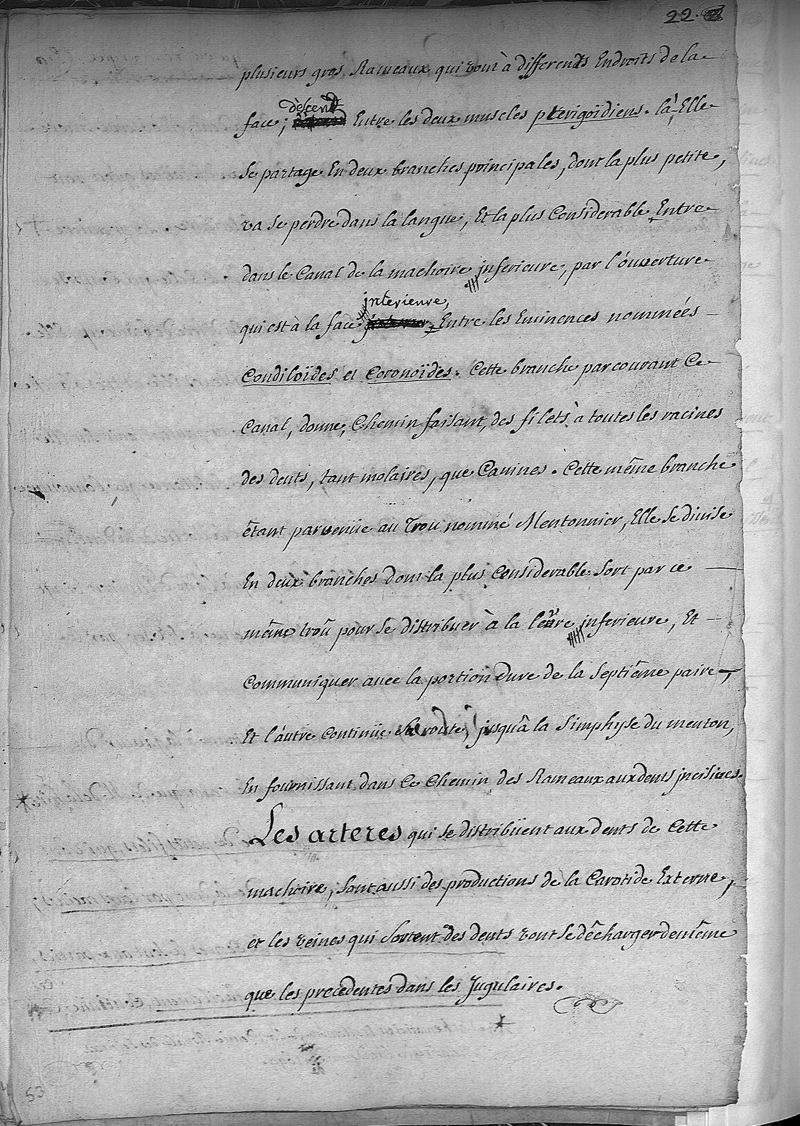 22.
plusieurs gros Rameaux qui vont à differents Endroits de la
descend
face; Entre les deux muscles pterigoïdiens. là, Elle
se partage En deux branches principales, dont la plus petite,
va se perdre dans la langue, Et la plus Considerable Entre
dans le Canal de la machoire jnferieure, par l'ouverture
jnterieure,
qui est à la face Entre les Eminences nommées
Condiloïdes et Coronoïdes. Cette branche parcourant Ce
Canal, donne, Chemin faisant, des filets à toutes les racines
des dents, tant molaires, que Canines. Cette même branche
êtant parvenüe au Trou nommé Mentonnier, Elle se divise
En deux branches dont la plus Considerable Sort par ce
même troû pour se distribuer à la levre jnferieure, Et
Communiquer avec la portion dure de la Septiême paire,
Et l'autre Continüe Sa route jusqu'à la Simphyse du menton,
En fournissant dans Ce Chemin des Rameaux aux dents jncisives.
Les arteres qui se distribüent aux dents de Cette
machoire, Sont aussi des productions de la Carotide Externe,
et les veines qui Sortent des dents vont se dêcharger de même
que les precedentes dans les Jugulaires.
53